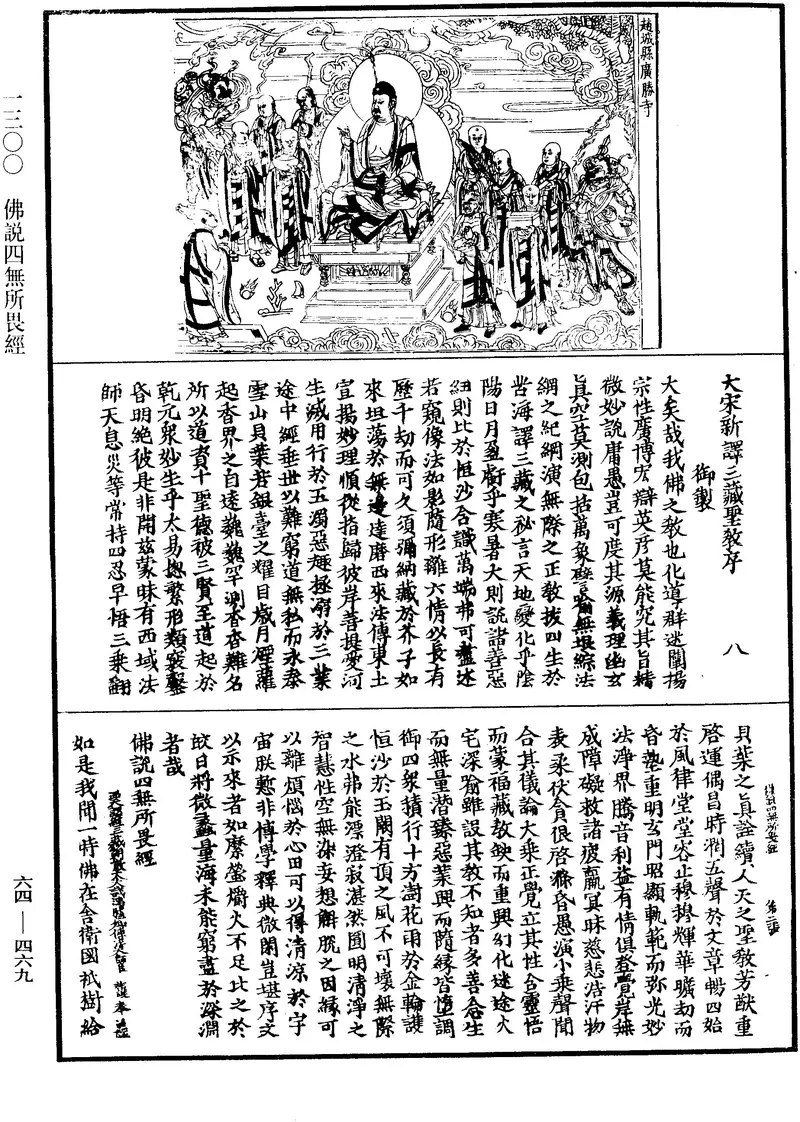 一三〇〇　佛説四無所畏經
趙城縣廣勝寺
大宋新譯三藏聖教序　八
御製
大矣哉我佛之教也化導群迷闡揚
宗性廣博宏辯英彥莫能究其旨精
微妙說庸愚豈可度其源義理幽玄
真空莫測包括萬象譬喻無垠綜法
網之紀綱演無際之正教拔四生於
苦海譯三藏之秘言天地變化乎陰
陽日月盈虧乎寒暑大則說諸善惡
細則比於恒沙含識萬端弗可盡述
若窺像法如影隨形離六情以長有
歷千劫而可久須彌納藏於芥子如
來坦蕩於無邊達磨西來法傳東土
宣揚妙理順從指歸彼岸菩提愛河
生滅用行於五濁惡趣拯溺於三業
途中經垂世以難窮道無私而永泰
雪山貝葉若銀臺之耀目歲月煙蘿
起香界之自遠巍巍罕測杳杳難名
所以道資十聖德被三賢至道起於
乾元衆妙生乎太易揔繁形類竅鑿
昏明絕彼是非開茲蒙昧有西域法
師天息災等常持四忍早悟三乘翻
貝葉之真詮續人天之聖教芳猷重
啓運偶昌時潤五聲於文章暢四始
於風律堂堂容止穆穆輝華曠劫而
昏墊重明玄門昭顯軌範而弥光妙
法淨界騰音利益有情俱登覺岸無
成障礙救諸疲羸冥昧慈悲浩汗物
表柔伏貪很啓滌昏愚演小乘聲聞
合其儀論大乘正覺立其性含靈悟
而蒙福藏教缺而重興幻化迷途火
宅深喻雖設其教不知者多善念生
而無量潛臻惡業興而隨緣皆墮調
御四衆積行十方澍花雨於金輪護
恒沙於玉闕有頂之風不可壞無際
之水弗能漂澄寂湛然圓明清淨之
智慧性空無染妄想解脫之因緣可
以離煩惱於心田可以得清涼於宇
宙朕慙非博學釋典微閑豈堪序文
以示來者如縻螢爝火不足比之於
皎日將微蠡量海未能窮盡於深淵
者哉
佛說四無所畏經
如是我聞一時佛在舍衛國祇樹給
六四—四六九